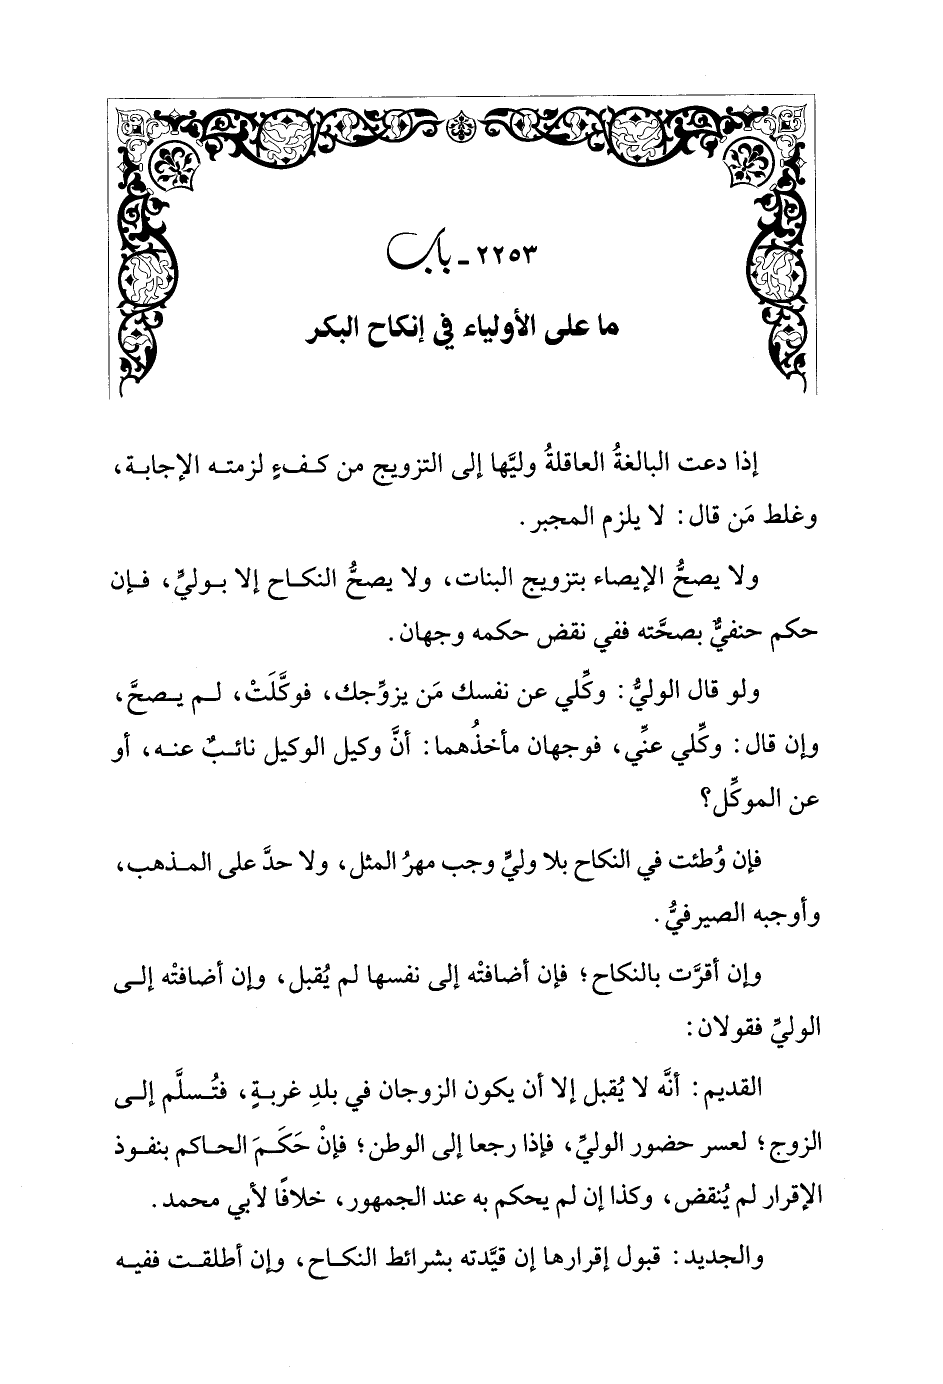 ٢٢٥٣ - باب
ما على الأولياء في إنكاح البكر
إذا دعت البالغةُ العاقلةُ وليَّها إلى التزويج من كفءٍ لزمته الإجابة،
وغلط مَن قال: لا يلزم المجبر.
ولا يصحُّ الإيصاء بتزويج البنات، ولا يصحُّ النكاح إلا بوليٍّ، فإن
حكم حنفيٌّ بصحَّته ففي نقض حكمه وجهان.
ولو قال الوليُّ: وكِّلي عن نفسك مَن يزوِّجك، فوكَّلَتْ، لم يصحَّ،
وإن قال: وكِّلي عنِّي، فوجهان مأخذُهما: أنَّ وكيل الوكيل نائبٌ عنه، أو
عن الموكِّل؟
فإن وُطئت في النكاح بلا وليٍّ وجب مهرُ المثل، ولا حدَّ على المذهب،
وأوجبه الصيرفيُّ.
وإن أقرَّت بالنكاح؛ فإن أضافتْه إلى نفسها لم يُقبل، وإن أضافتْه إلى
الوليِّ فقولان:
القديم: أنَّه لا يُقبل إلا أن يكون الزوجان في بلدِ غربةٍ، فتُسلَّم إلى
الزوج؛ لعسر حضور الوليِّ، فإذا رجعا إلى الوطن؛ فإنْ حَكَمَ الحاكم بنفوذ
الإقرار لم يُنقض، وكذا إن لم يحكم به عند الجمهور، خلافًا لأبي محمد.
والجديد: قبول إقرارها إن قيَّدته بشرائط النكاح، وإن أطلقت ففيه